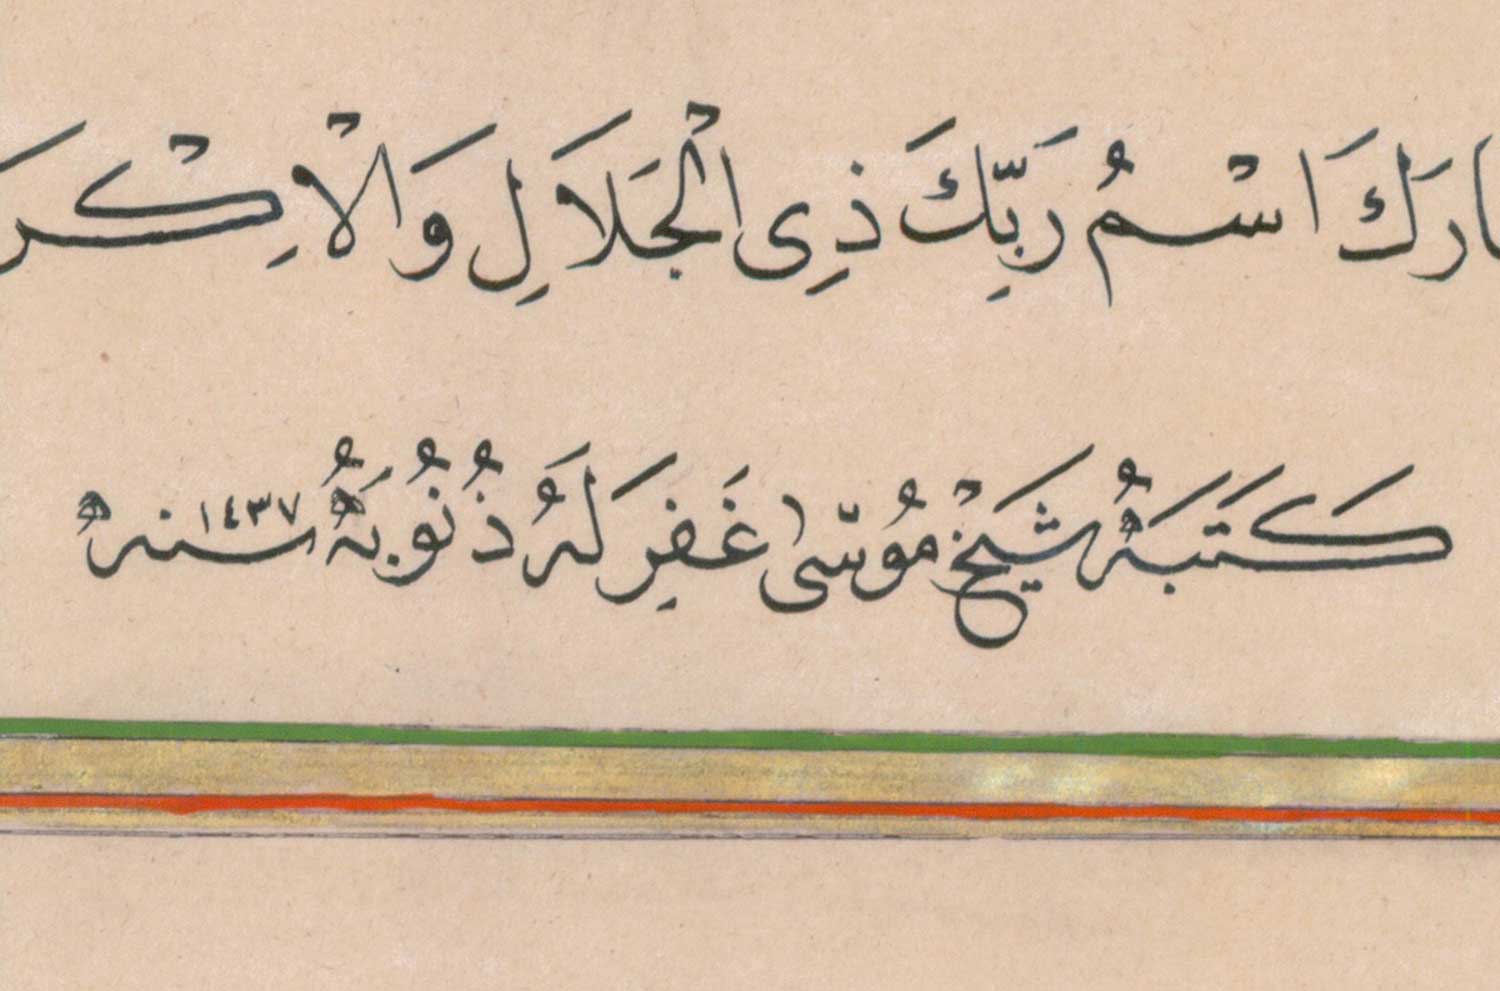 ارَكَ اسْمُ رَبِّكَ ذِى الْجَلَالِ وَالْاِكْرَ
كَتَبَهُ شَيْخ مُوسٰى غَفِرَ لَهُ ذُنُوبَهُ سنه ١٤٣٧